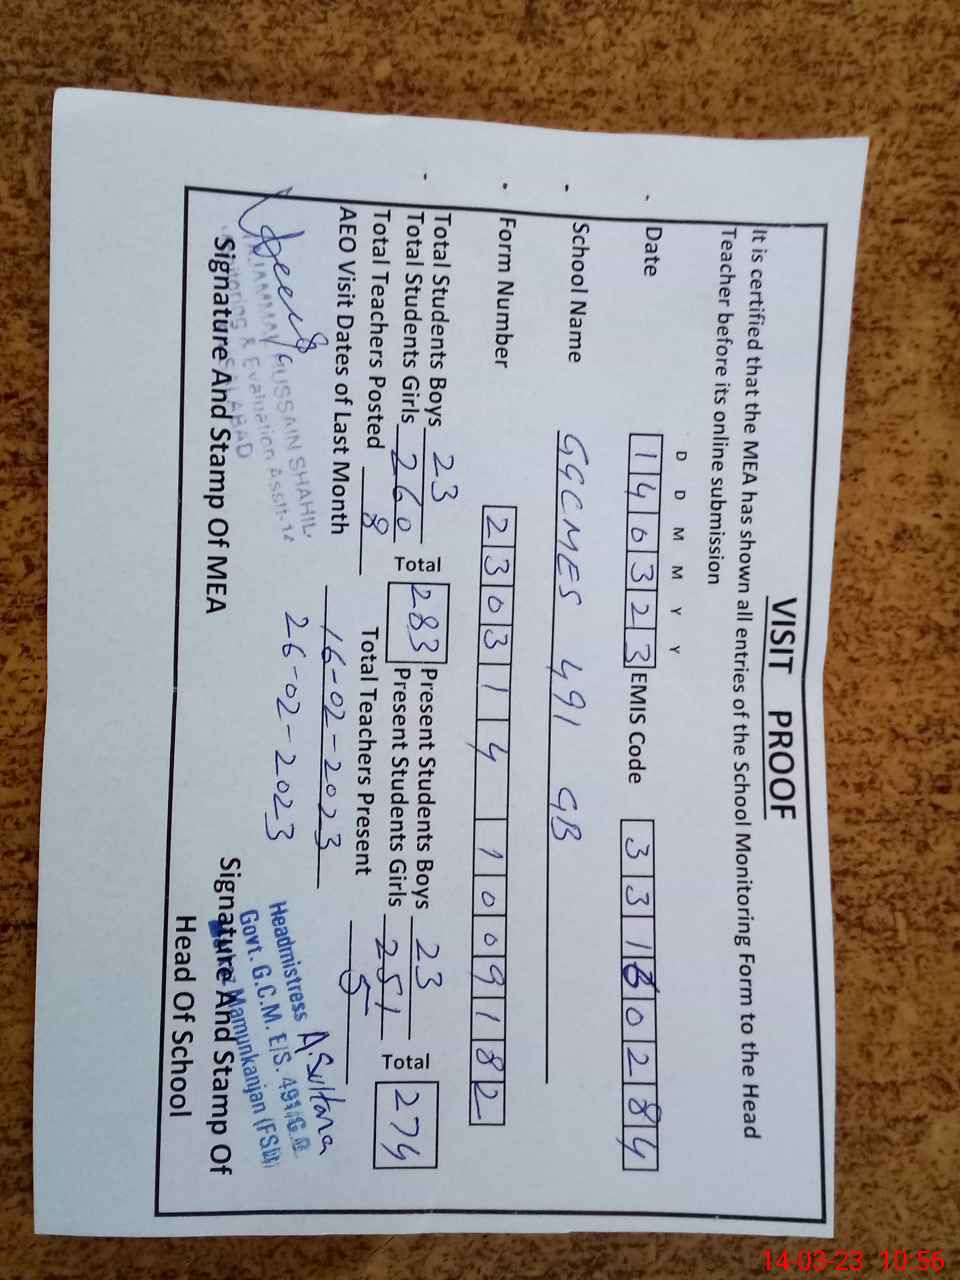 VISIT PROOF
It is certified that the MEA has shown all entries of the School Monitoring Form to the Head
Teacher before its online submission
D D M M Y Y
Date 140323 EMIS Code 33160284
School Name GGCMES 491 GB
Form Number 230314 1009182
Total Students Boys 23 Total 283 Present Students Boys 23 Total 274
Total Students Girls 260 Present Students Girls 251
Total Teachers Posted 8 Total Teachers Present 5
AEO Visit Dates of Last Month 16-02-2023
26-02-2023
HUSSAIN SHAHIL
& Evaluation Asstt.
Signature And Stamp Of MEA
A.Sultana
Headmistress
Govt. G.C.M. E/S. 491/G.B
Mamunkanjan (FSD)
Signature And Stamp Of
Head Of School
14-03-23 10:56